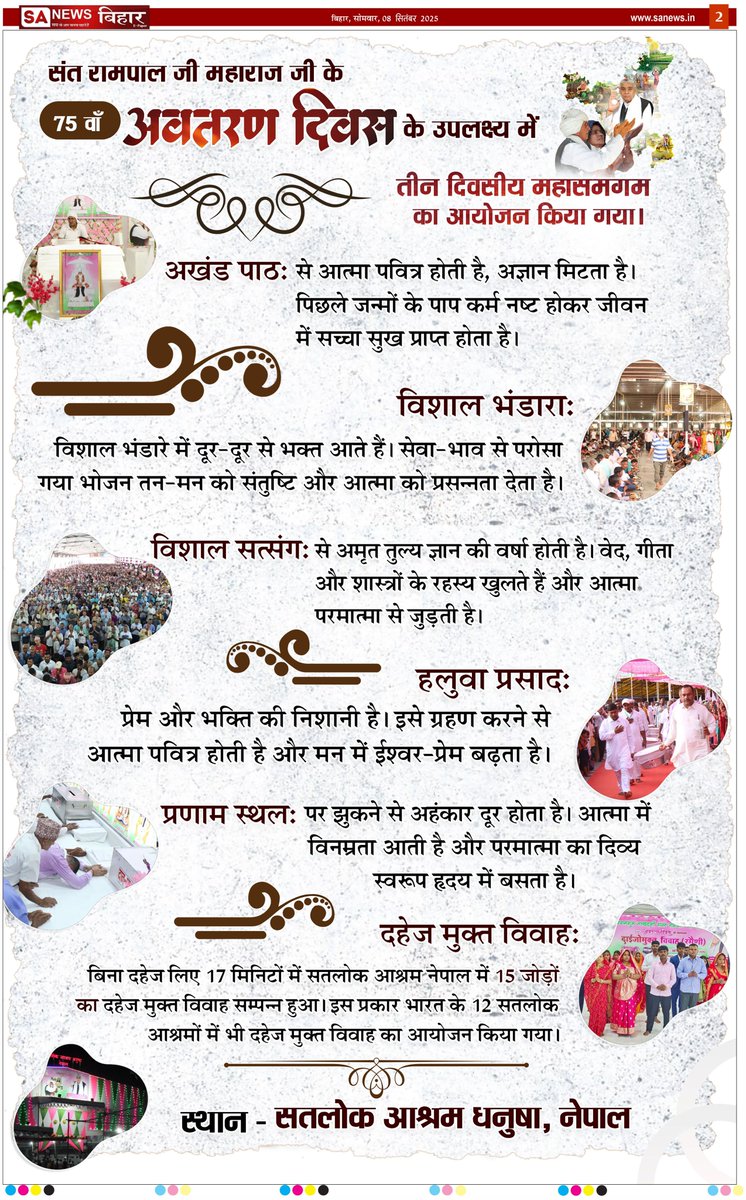 SA NEWS बिहार
बिहार, सोमवार, 08 सितंबर 2025
www.sanews.in
2
संत रामपाल जी महाराज जी के
75 वाँ अवतरण दिवस के उपलक्ष्य में
तीन दिवसीय महासमगम
का आयोजन किया गया।
अखंड पाठः से आत्मा पवित्र होती है, अज्ञान मिटता है।
पिछले जन्मों के पाप कर्म नष्ट होकर जीवन
में सच्चा सुख प्राप्त होता है।
विशाल भंडाराः
विशाल भंडारे में दूर-दूर से भक्त आते हैं। सेवा-भाव से परोसा
गया भोजन तन-मन को संतुष्टि और आत्मा को प्रसन्नता देता है।
विशाल सत्संगः से अमृत तुल्य ज्ञान की वर्षा होती है। वेद, गीता
और शास्त्रों के रहस्य खुलते हैं और आत्मा
परमात्मा से जुड़ती है।
हलुवा प्रसादः
प्रेम और भक्ति की निशानी है। इसे ग्रहण करने से
आत्मा पवित्र होती है और मन में ईश्वर-प्रेम बढ़ता है।
प्रणाम स्थलः पर झुकने से अहंकार दूर होता है। आत्मा में
विनम्रता आती है और परमात्मा का दिव्य
स्वरूप हृदय में बसता है।
दहेज मुक्त विवाहः
दाईजोमुक्त विवाह (रमैणी)
बिना दहेज लिए 17 मिनिटों में सतलोक आश्रम नेपाल में 15 जोड़ों
का दहेज मुक्त विवाह सम्पन्न हुआ। इस प्रकार भारत के 12 सतलोक
आश्रमों में भी दहेज मुक्त विवाह का आयोजन किया गया।
स्थान - सतलोक आश्रम धनुषा, नेपाल